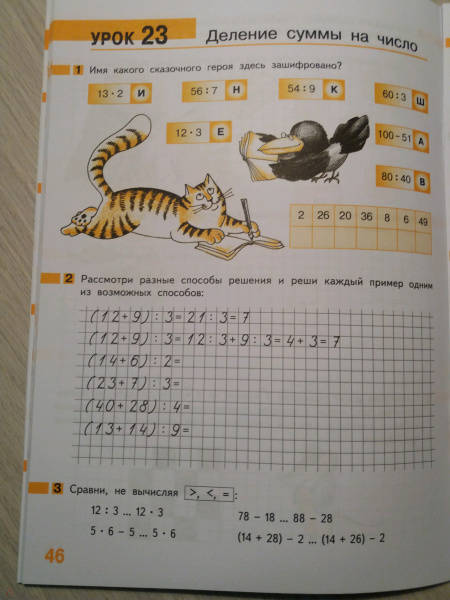 УРОК 23 Деление суммы на число
1 Имя какого сказочного героя здесь зашифровано?
13 · 2 И 56 : 7 Н 54 : 9 К 60 : 3 Ш
12 · 3 Е 100 – 51 А
80 : 40 В
2 26 20 36 8 6 49
2 Рассмотри разные способы решения и реши каждый пример одним
из возможных способов:
(12+9) : 3=21 : 3=7
(12+9) : 3=12 : 3+9 : 3=4+3=7
(14+6) : 2=
(23+7) : 3=
(40+28) : 4=
(13+14) : 9=
3 Сравни, не вычисляя >, <, = :
12 : 3 ... 12 · 3 78 – 18 ... 88 – 28
5 · 6 – 5 ... 5 · 6 (14 + 28) – 2 ... (14 + 26) – 2
46